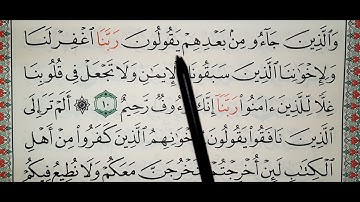 وَٱلَّذِينَ جَآءُو مِنۢ بَعۡدِهِمۡ يَقُولُونَ رَبَّنَا ٱغۡفِرۡ لَنَا
وَلِإِخۡوَٰنِنَا ٱلَّذِينَ سَبَقُونَا بِٱلۡإِيمَٰنِ وَلَا تَجۡعَلۡ فِي قُلُوبِنَا
غِلّٗا لِّلَّذِينَ ءَامَنُواْ رَبَّنَآ إِنَّكَ رَءُوفٞ رَّحِيمٌ ١٠ ۞ أَلَمۡ تَرَ إِلَى
ٱلَّذِينَ نَافَقُواْ يَقُولُونَ لِإِخۡوَٰنِهِمُ ٱلَّذِينَ كَفَرُواْ مِنۡ أَهۡلِ
ٱلۡكِتَٰبِ لَئِنۡ أُخۡرِجۡتُمۡ لَنَخۡرُجَنَّ مَعَكُمۡ وَلَا نُطِيعُ فِيكُمۡ